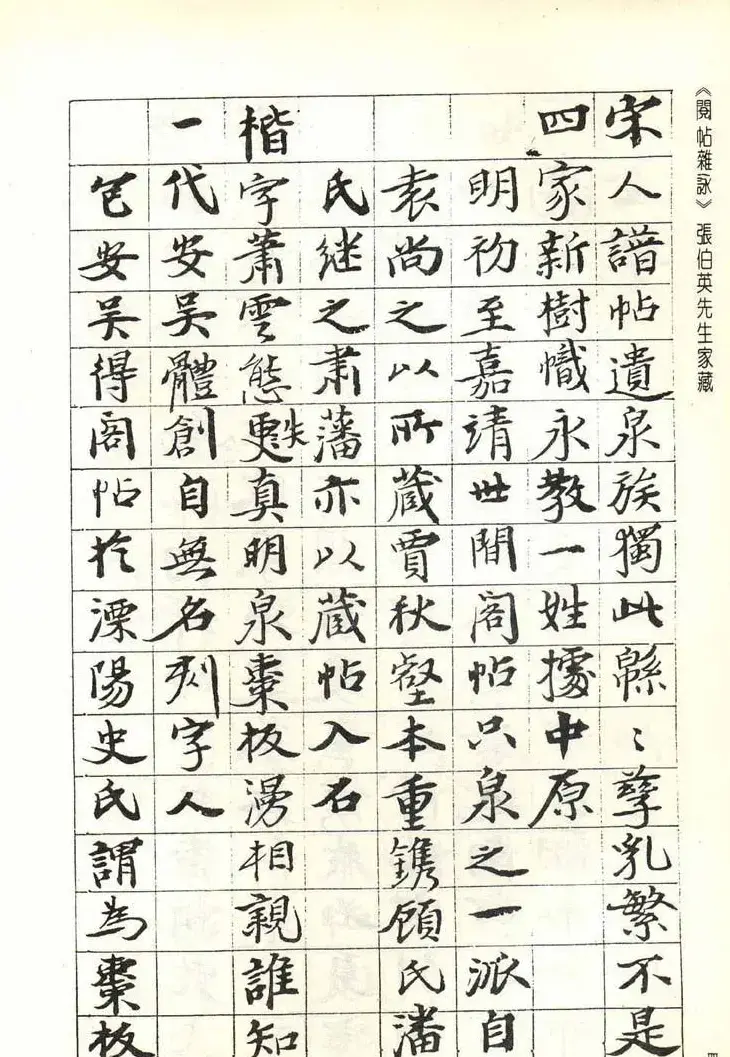 《閱帖雜詠》張伯英先生家藏
宋人譜帖遺泉族獨此緜〻孳乳繁不是
四家新樹幟永教一姓據中原
明初至嘉靖世間閣帖只泉之一派自
袁尚之以所藏賈秋壑本重鐫顧氏潘
氏继之肅藩亦以藏帖入石
楷字蕭雲態更真明泉棗板漫相親誰知
一代安吳體創自無名刻字人
包安吴得阁帖於溧陽史氏謂為棗板